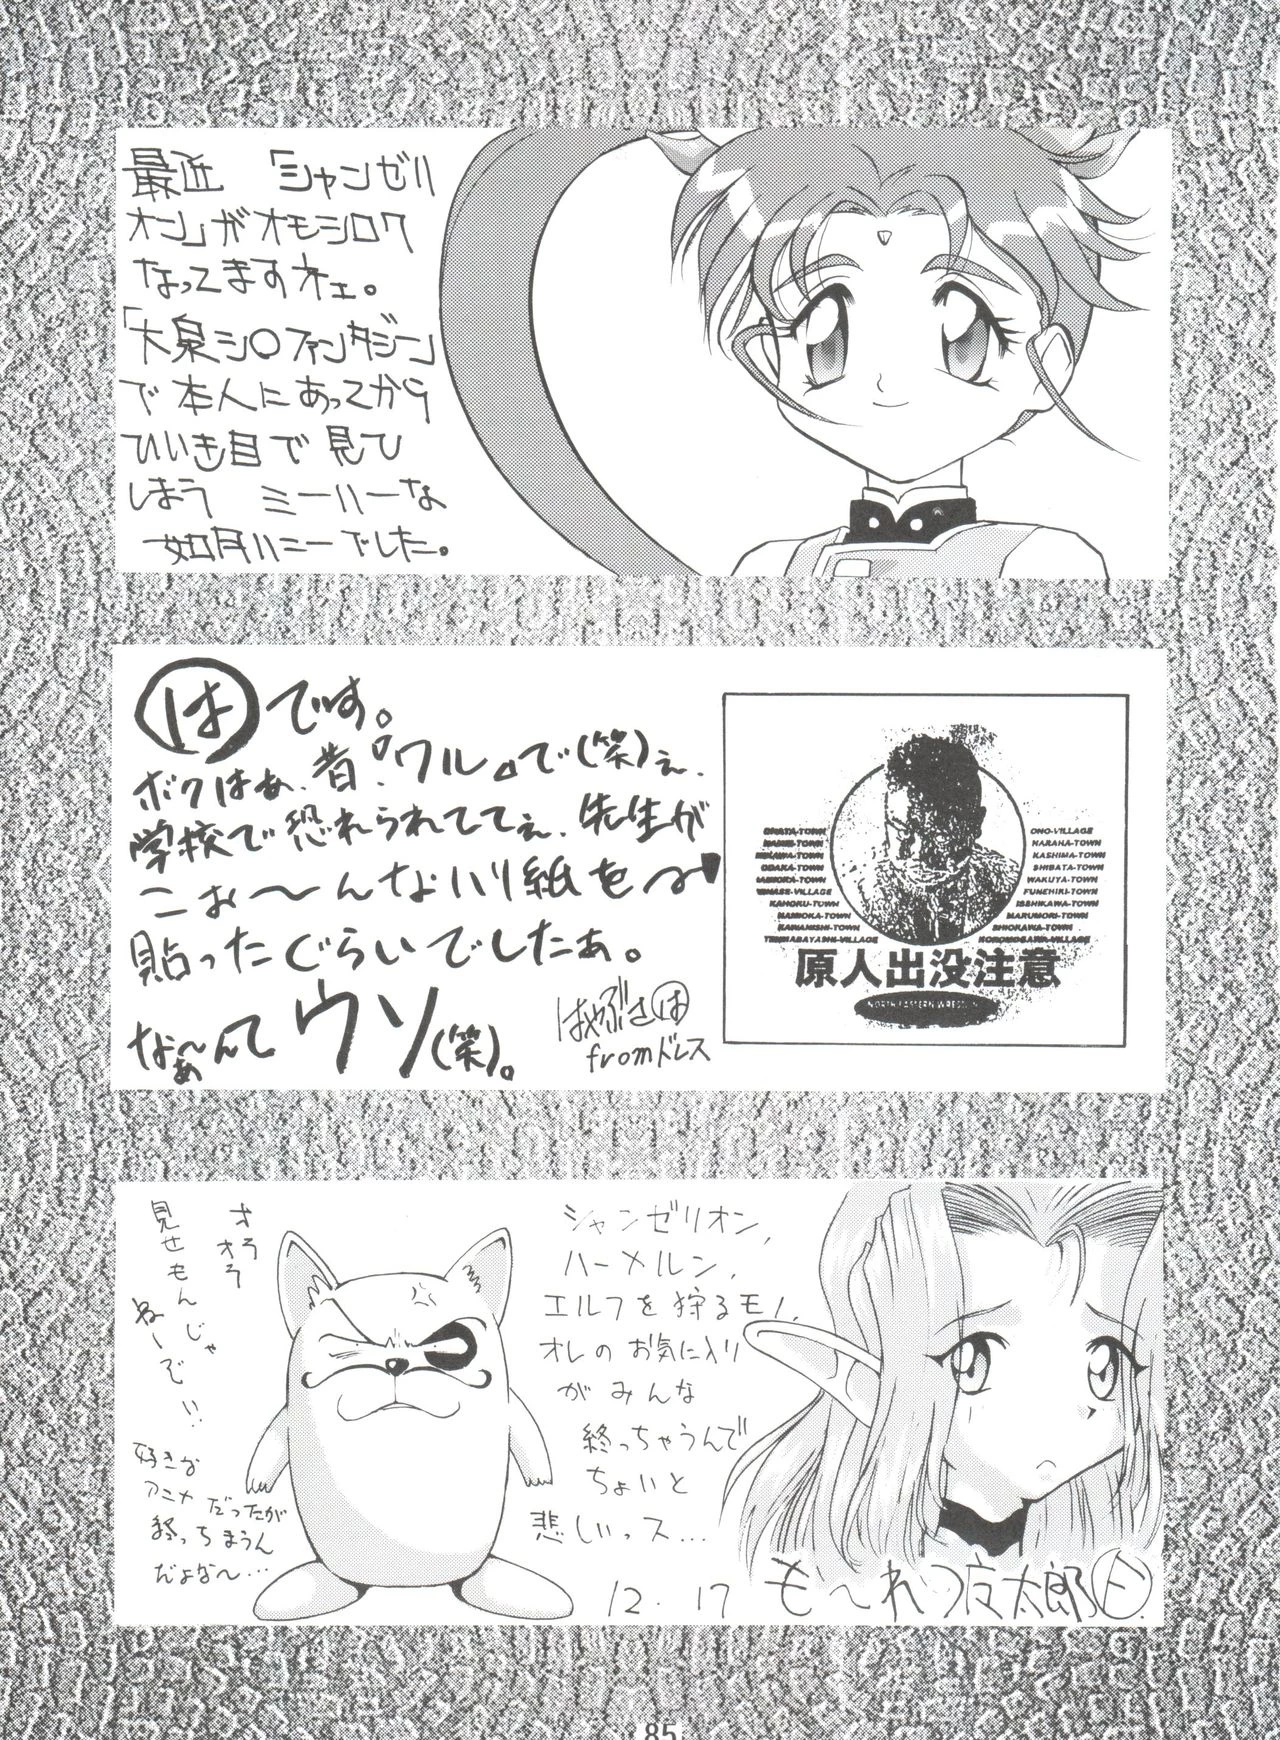 最近 「シャンゼリ
オン」がオモシロク
なってますネェ。
「大泉シ〇ファンタジー」
で本人にあってから
ひいき目で見ち
しまう ミーハーな
如月ハニーでした。
はです。
ボクはぁ、昔『ワル』で(笑)ぇ、
学校で恐れられててぇ、先生が
こぉ〜んなハリ紙を
貼ったぐらいでしたぁ。
なぁ〜んてウソ(笑)。
はやぶさは
fromドレス
ONO-VILLAGE
NARAHA-TOWN
KASHIMA-TOWN
ODAKA-TOWN
SHIBATA-TOWN
WAKUYA-TOWN
FUNEHIKI-TOWN
KAHOKU-TOWN
ISSHIKAWA-TOWN
NAMIOKA-TOWN
MARUMORI-TOWN
KAWANISHI-TOWN
SHIOKAWA-TOWN
TENNABAYASHI-VILLAGE
原人出没注意
NORTH EASTERN WRESTLIN
オラ
オラ
見せもんじゃ
ねーでい!!
好きな
アニメだったが
終っちまうん
だよな〜…
シャンゼリオン、
ハーメルン、
エルフを狩るモノ、
オレのお気に入り
がみんな
終っちゃうんで
ちょいと
悲しいっス…
12.17
も〜れつ夜太郎
85